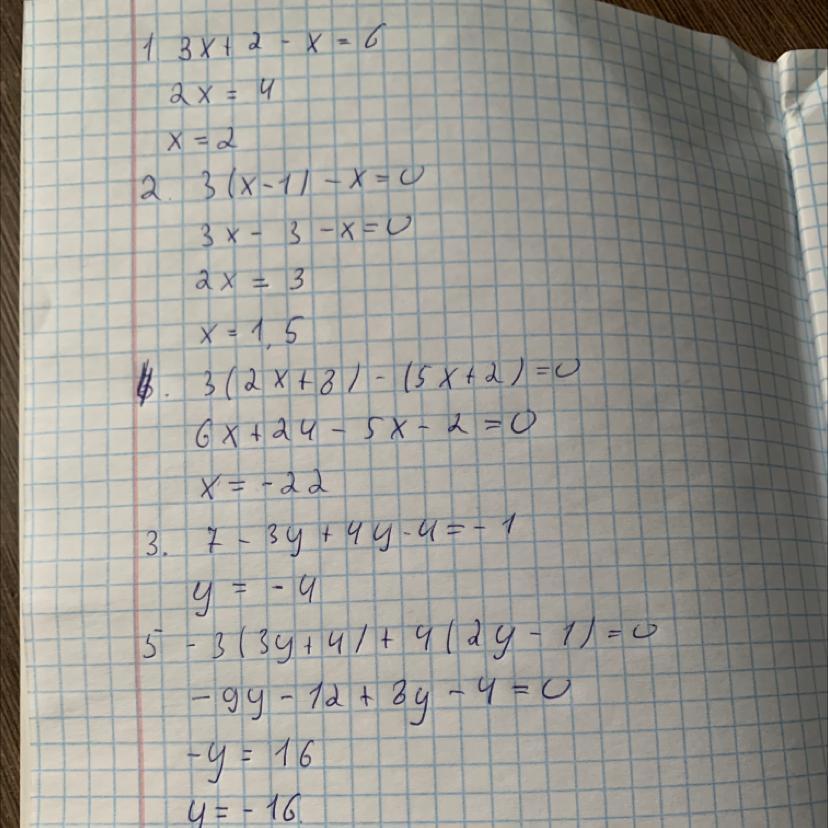 1 3x + 2 - x = 6
2x = 4
x = 2
2. 3(x - 1) - x = 0
3x - 3 - x = 0
2x = 3
x = 1,5
4. 3(2x + 8) - (5x + 2) = 0
6x + 24 - 5x - 2 = 0
x = -22
3. 7 - 3y + 4y - 4 = - 1
y = - 4
5 - 3(3y + 4) + 4(2y - 1) = 0
- 9y - 12 + 8y - 4 = 0
-y = 16
y = - 16